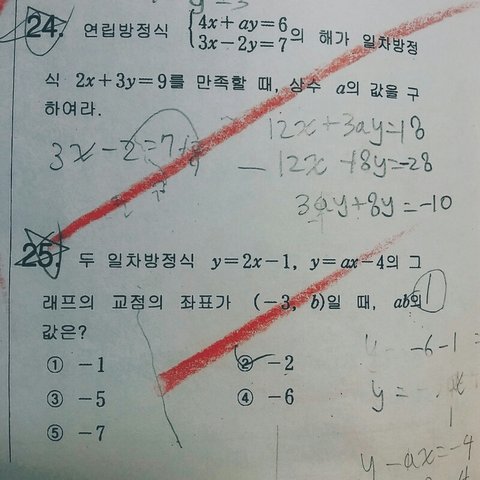 24. 연립방정식 {4x+ay=6 3x-2y=7 의 해가 일차방정
식 2x+3y=9를 만족할 때, 상수 a의 값을 구
하여라.
12x+3ay=18
3x-2=7+
- 12x +8y=-28
3ay+8y=-10
25. 두 일차방정식 y=2x-1, y=ax-4의 그
래프의 교점의 좌표가 (-3, b)일 때, ab의
값은?
① -1 ② -2
③ -5 ④ -6
⑤ -7
1
-6-1=
y=
1
y-ax=-4